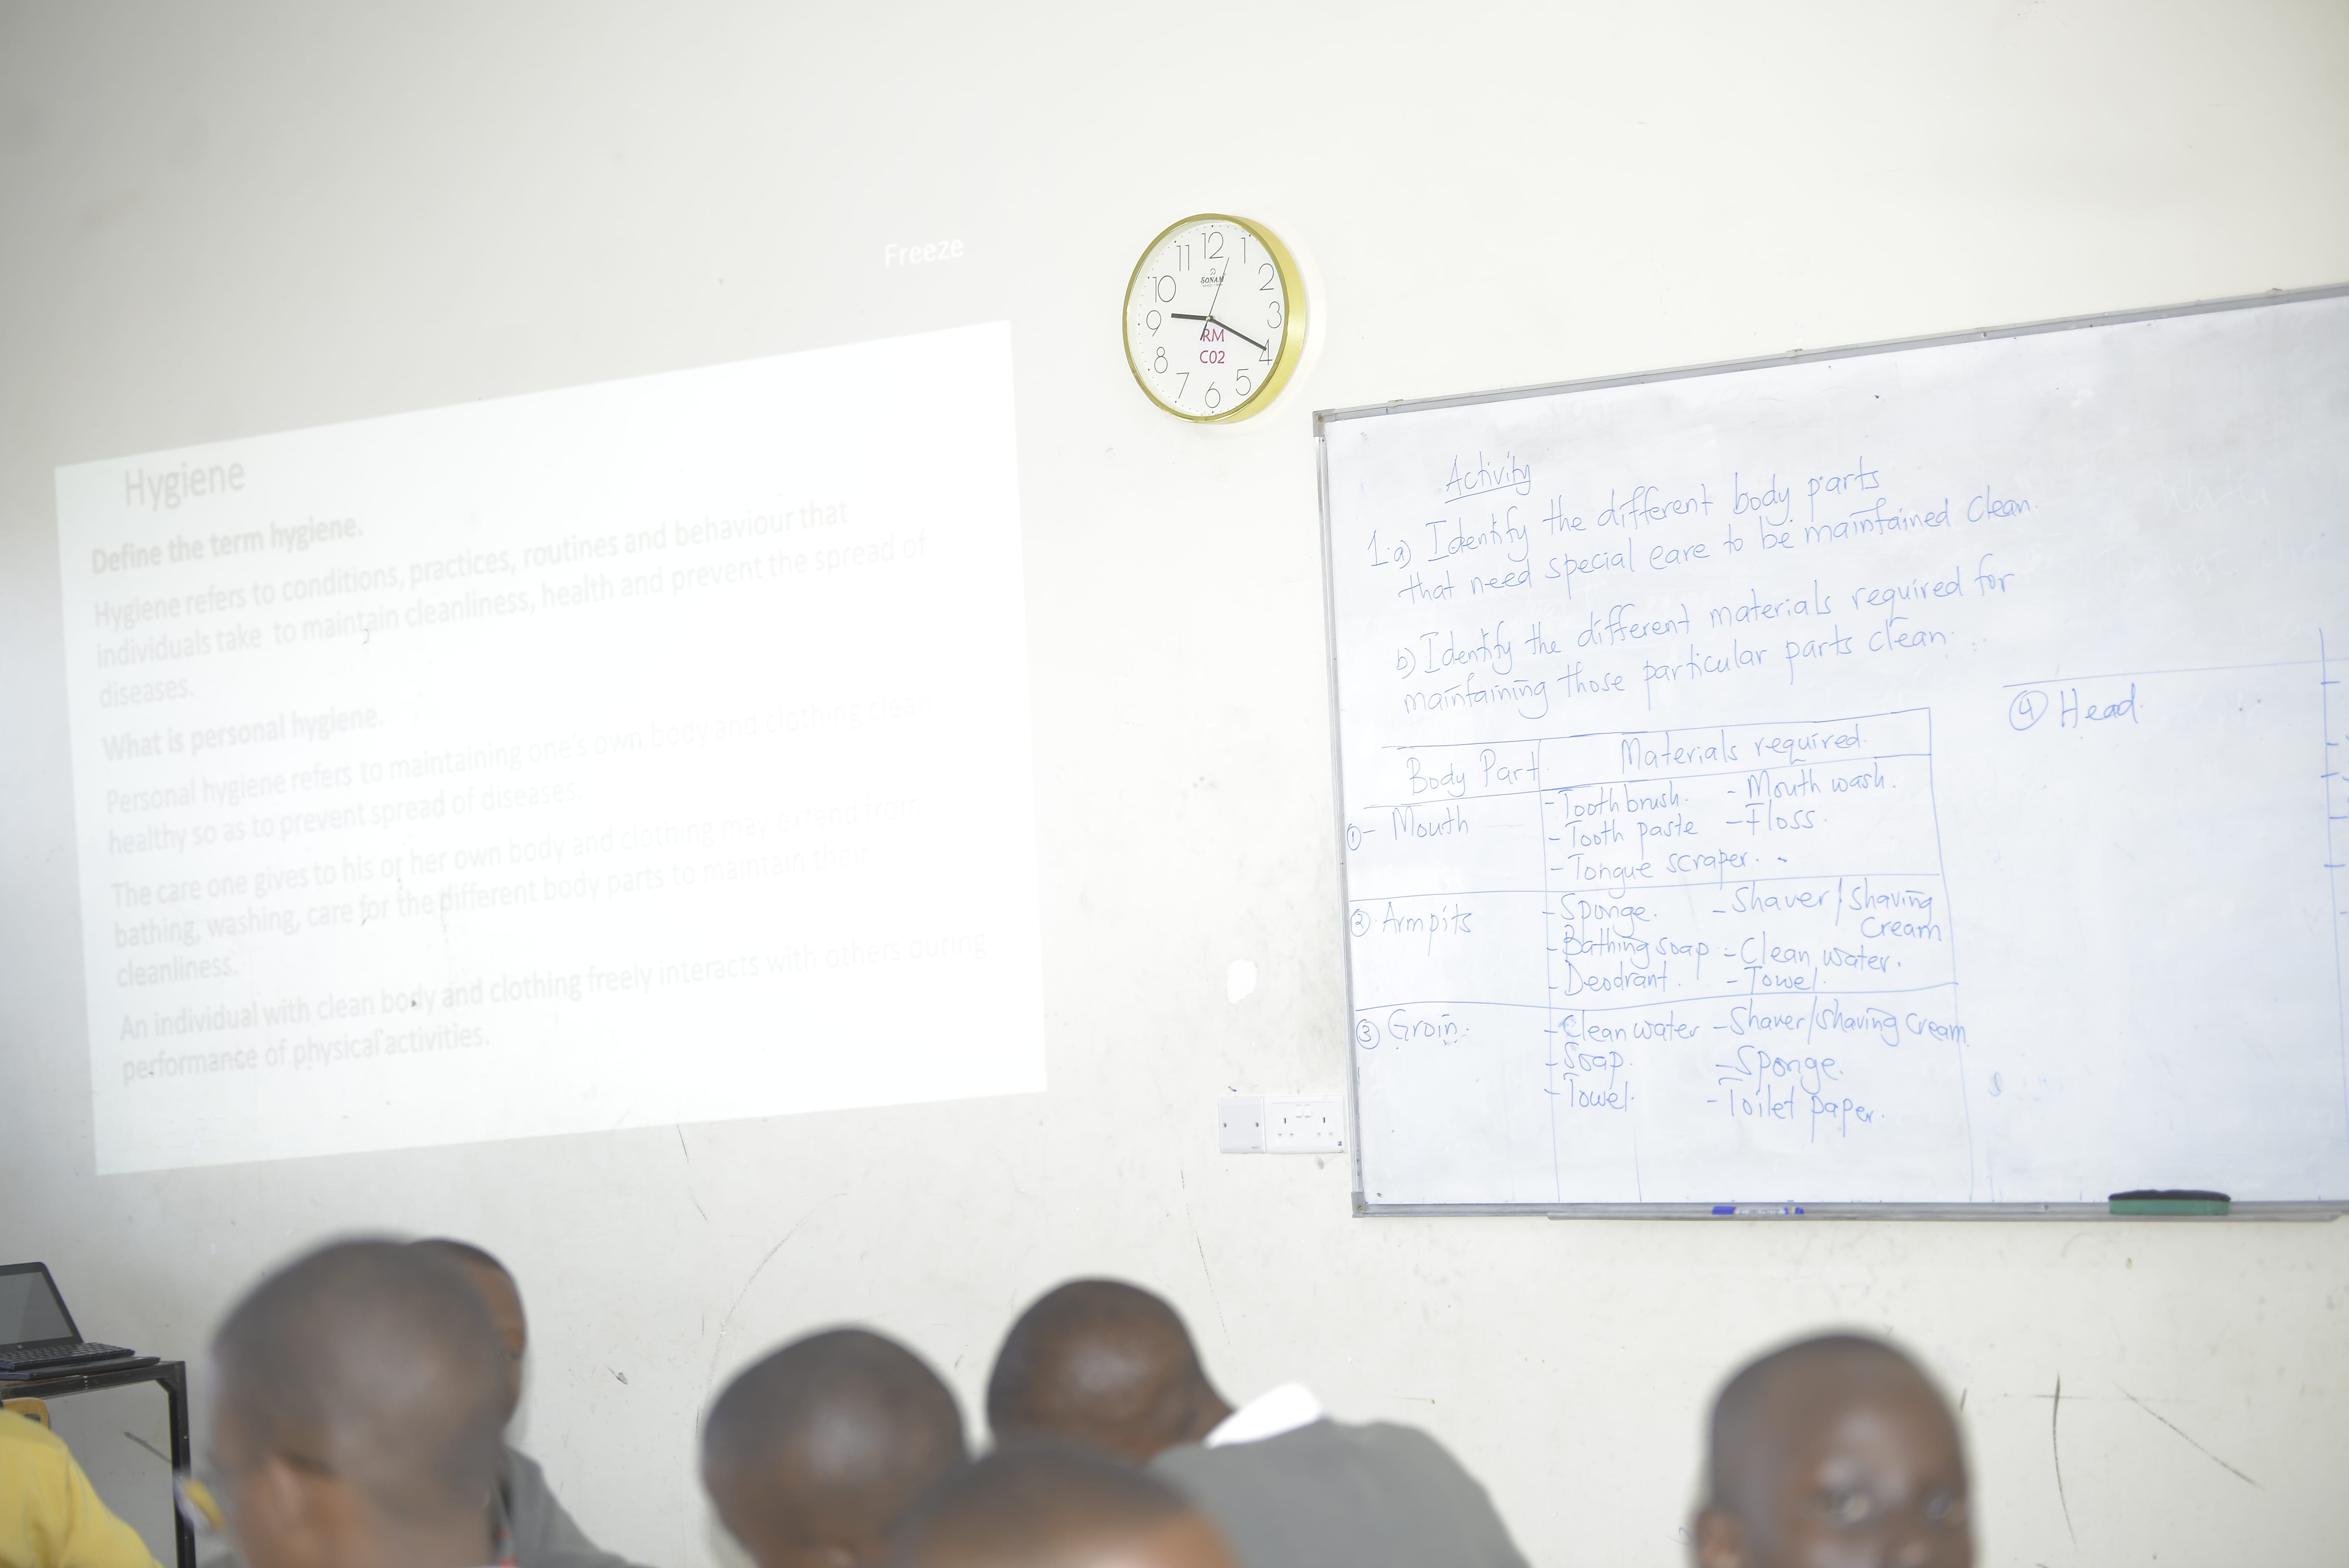 Freeze
Hygiene
Define the term hygiene.
Hygiene refers to conditions, practices, routines and behaviour that
individuals take to maintain cleanliness, health and prevent the spread of
diseases.
What is personal hygiene.
Personal hygiene refers to maintaining one's own body and clothing clean
healthy so as to prevent spread of diseases.
The care one gives to his or her own body and clothing may extend from
bathing, washing, care for the different body parts to maintain their
cleanliness.
An individual with clean body and clothing freely interacts with others during
performance of physical activities.
12
1
2
3
4
5
6
7
8
9
10
11
SONAM
RM
C02
Activity
1.a) Identify the different body parts
that need special care to be maintained clean.
b) Identify the different materials required for
maintaining those particular parts clean.
Body Part Materials required.
① - Mouth - Toothbrush. - Mouth wash.
- Tooth paste - Floss.
- Tongue scraper.
② Armpits - Sponge. - Shaver/shaving
cream
- Bathing soap - Clean water.
- Deodrant. - Towel.
③ Groin. - Clean water - Shaver/shaving cream
- Soap. - Sponge.
- Towel. - Toilet paper.
④ Head.